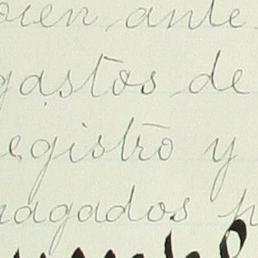 bien ante
gastos de
registro y
pagados p